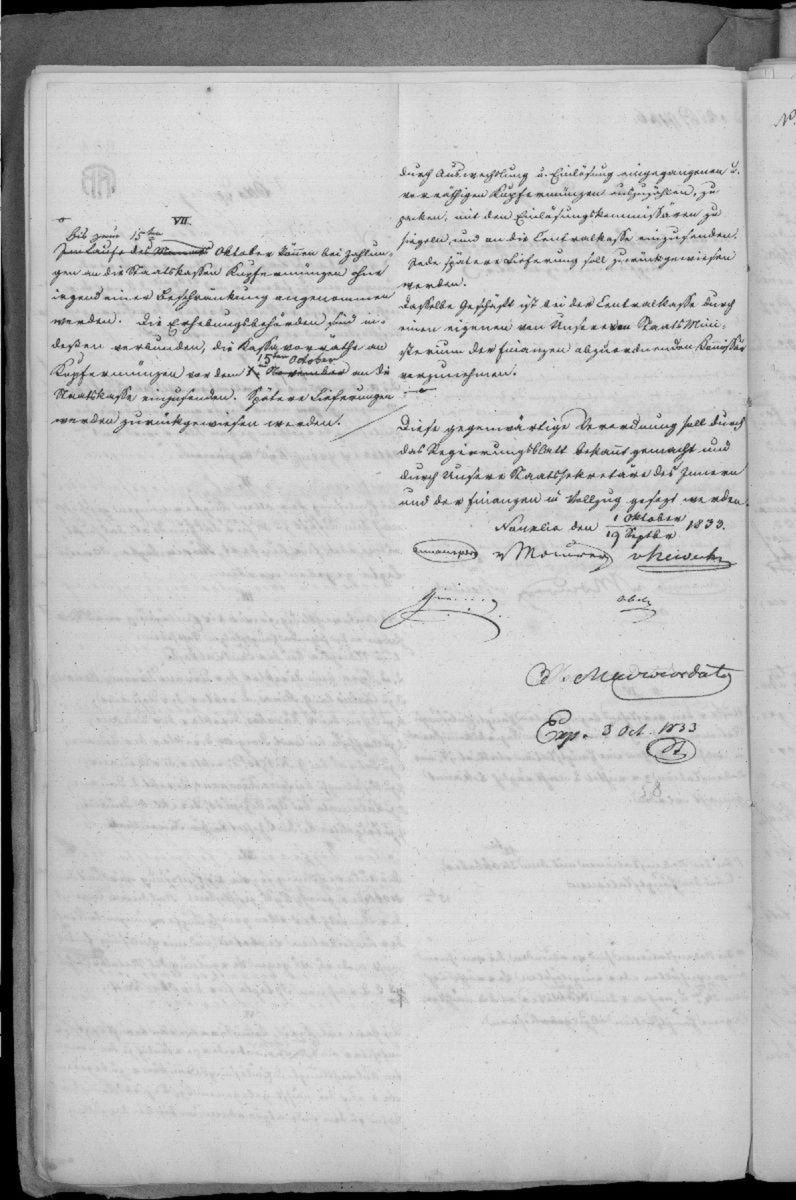 VII.
bis zum 15ten
Im Laufe des Monats Oktober können bei Zahlun-
gen an die Staatskassen Kupfermünzen ohne
irgend einer Beschränkung angenommen
werden. Die Erhebungsbehörden sind in-
dessen verbunden, die Kassavorräthe an
15ten October
Kupfermünzen vor dem November an die
Staatskasse einzusenden. Spätere Lieferungen
werden zurückgewiesen werden.
durch Auswechslung u. Einlösung eingegangenen u.
vorräthigen Kupfermünzen auszuzählen, zu
packen, mit den Einlösungskommissären zu
siegeln, und an die Centralkasse einzusenden.
Jede spätere Lieferung soll zurückgewiesen
werden.
Dasselbe Geschäft ist bei der Centralkasse durch
einen eigenen von Unserem StaatsMini-
sterium der Finanzen abzuordnenden Kommissär
vorzunehmen.
Diese gegenwärtige Verordnung soll durch
das Regierungsblatt bekannt gemacht und
durch Unsere Staatssekretäre des Innern
und der Finanzen in Vollzug gesezt werden.
Nauplia den 1 Oktober 1833.
19 Septbr
Armansperg v Maurer v Heideck
Abel
A. Mavrocordatos
Exp. 3 Oct. 1833